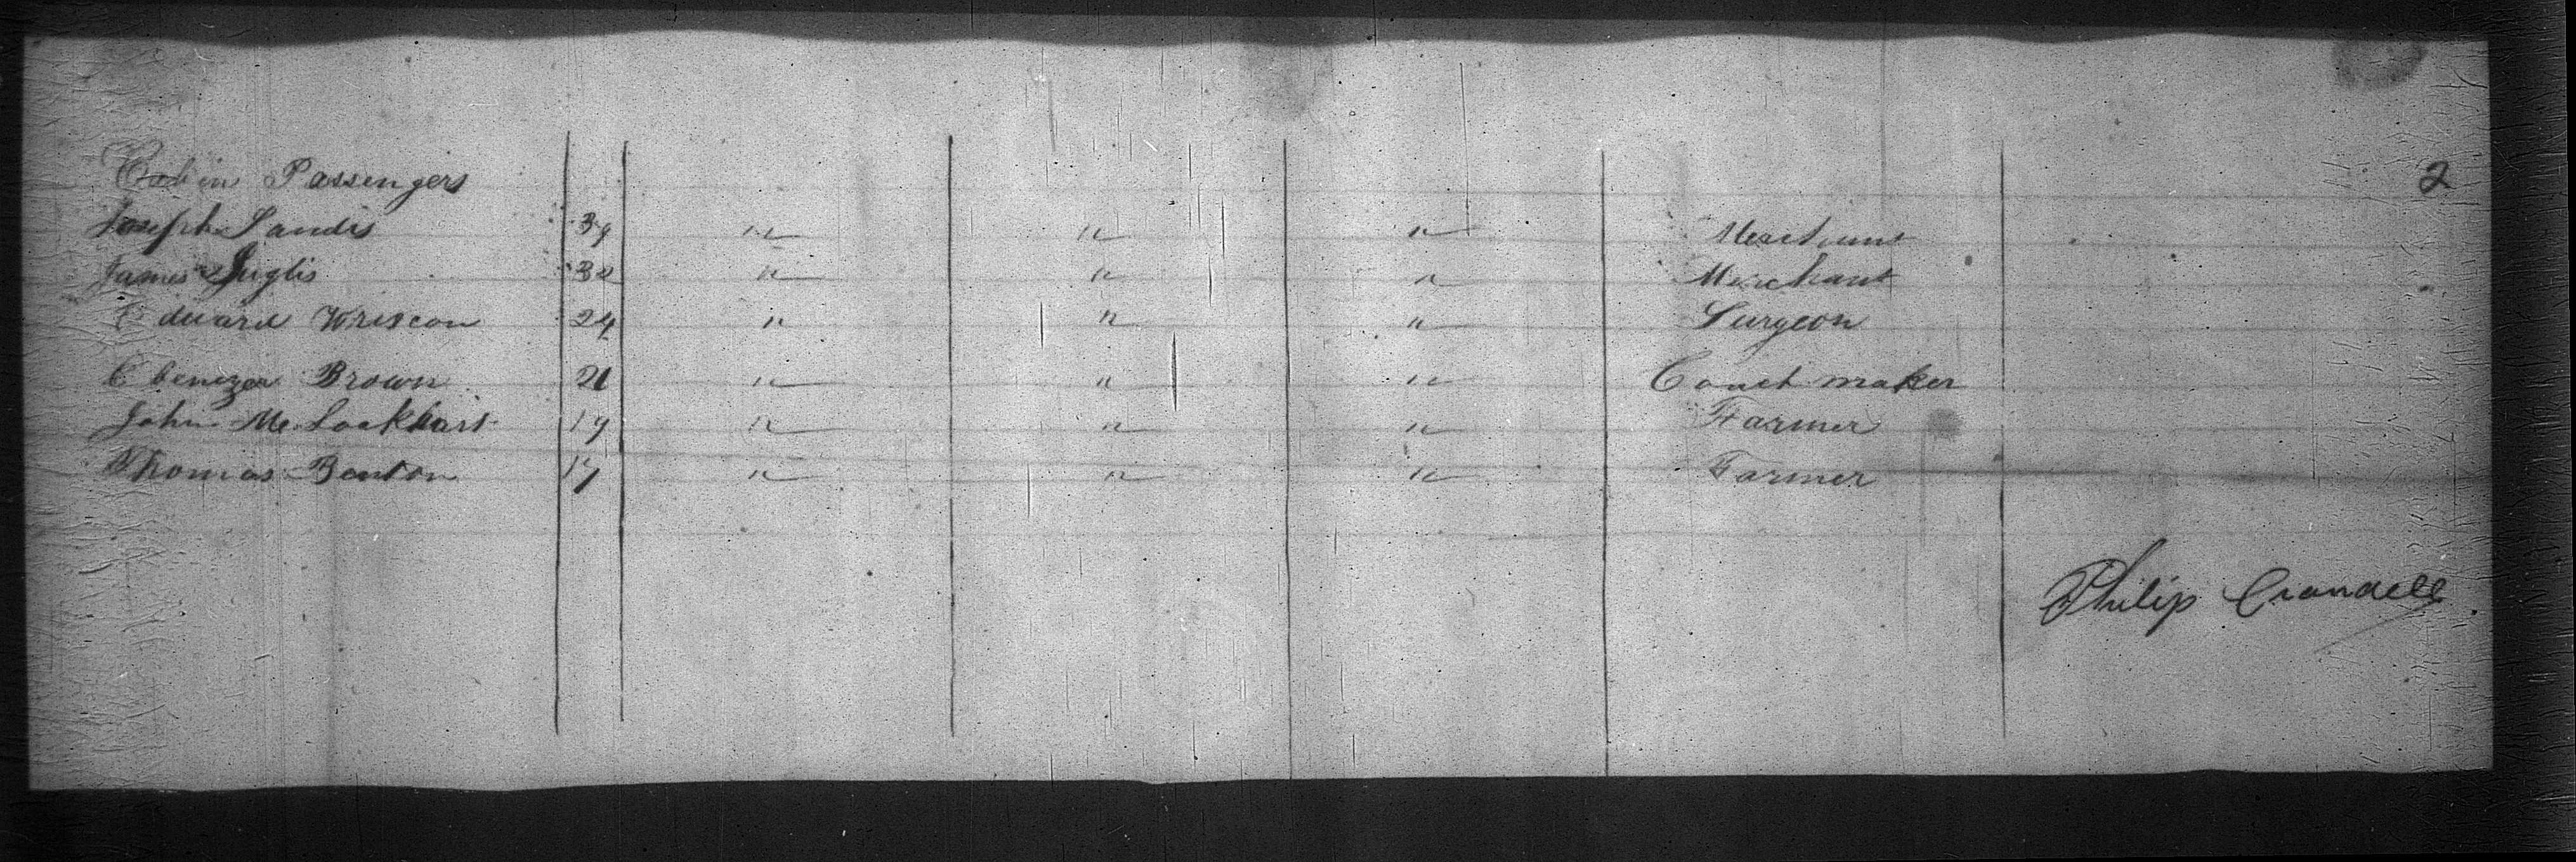 2
Cabin Passengers
Joseph Landis 39 " " " Merchant
James Inglis 32 " " " Merchant
Edward Wriscon 24 " " " Surgeon
Ebenezer Brown 21 " " " Coach maker
John Mc Lockhart 19 " " " Farmer
Thomas Benton 17 " " " Farmer
Philip Crandell